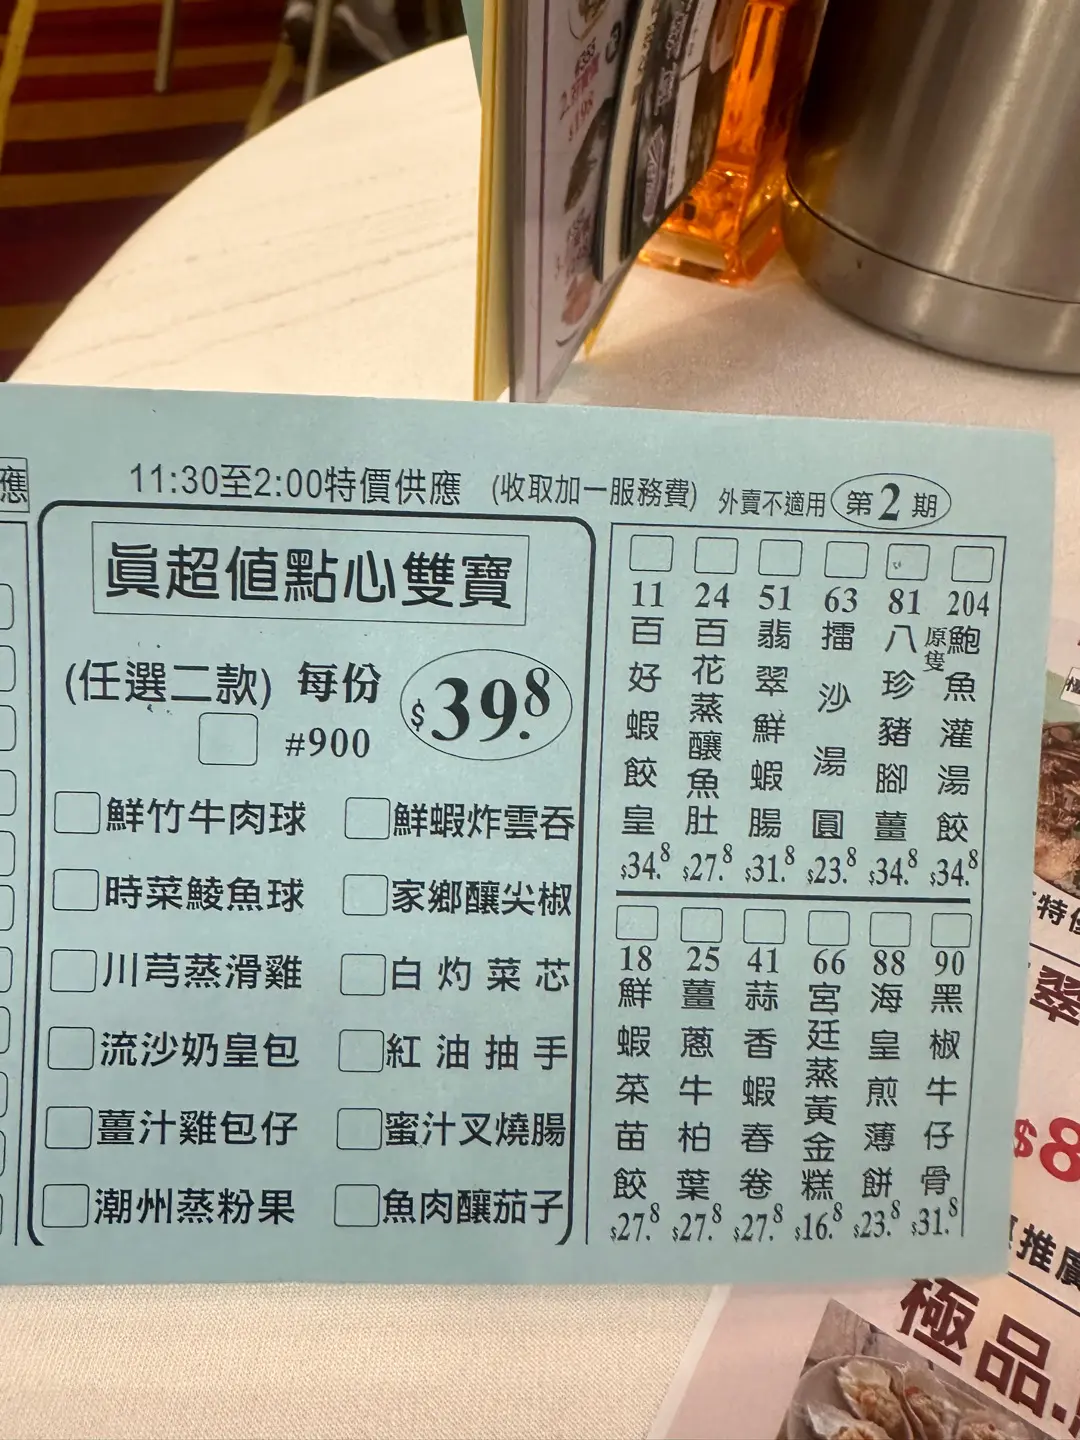 應
11:30至2:00特價供應 (收取加一服務費) 外賣不適用 第2期
眞超值點心雙寶
(任選二款) 每份 $39.8
#900
鮮竹牛肉球
鮮蝦炸雲吞
時菜鯪魚球
家鄉釀尖椒
川芎蒸滑雞
白灼菜芯
流沙奶皇包
紅油抽手
薑汁雞包仔
蜜汁叉燒腸
潮州蒸粉果
魚肉釀茄子
11 百好蝦餃皇 $34.8
24 百花蒸釀魚肚 $27.8
51 翡翠鮮蝦腸 $31.8
63 擂沙湯圓 $23.8
81 八珍豬腳薑 $34.8
204 原隻鮑魚灌湯餃 $34.8
18 鮮蝦菜苗餃 $27.8
25 薑蔥牛柏葉 $27.8
41 蒜香蝦春卷 $27.8
66 宮廷蒸黃金糕 $16.8
88 海皇煎薄餅 $23.8
90 黑椒牛仔骨 $31.8
特
翠
$8
推廣
極品